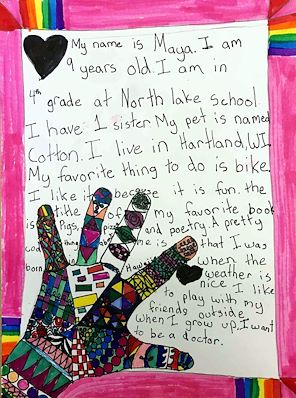 My name is Maya. I am
9 years old. I am in
4th grade at North lake School.
I have 1 sister. My pet is named
Cotton. I live in Hartland, WI.
My favorite thing to do is bike.
I like it because it is fun. the
title of my favorite book
is Pigs, and poetry. A pretty
thing me is that I was
born in when the
weather is
nice I like
to play with my
friends outside
when I grow up, I want
to be a doctor.